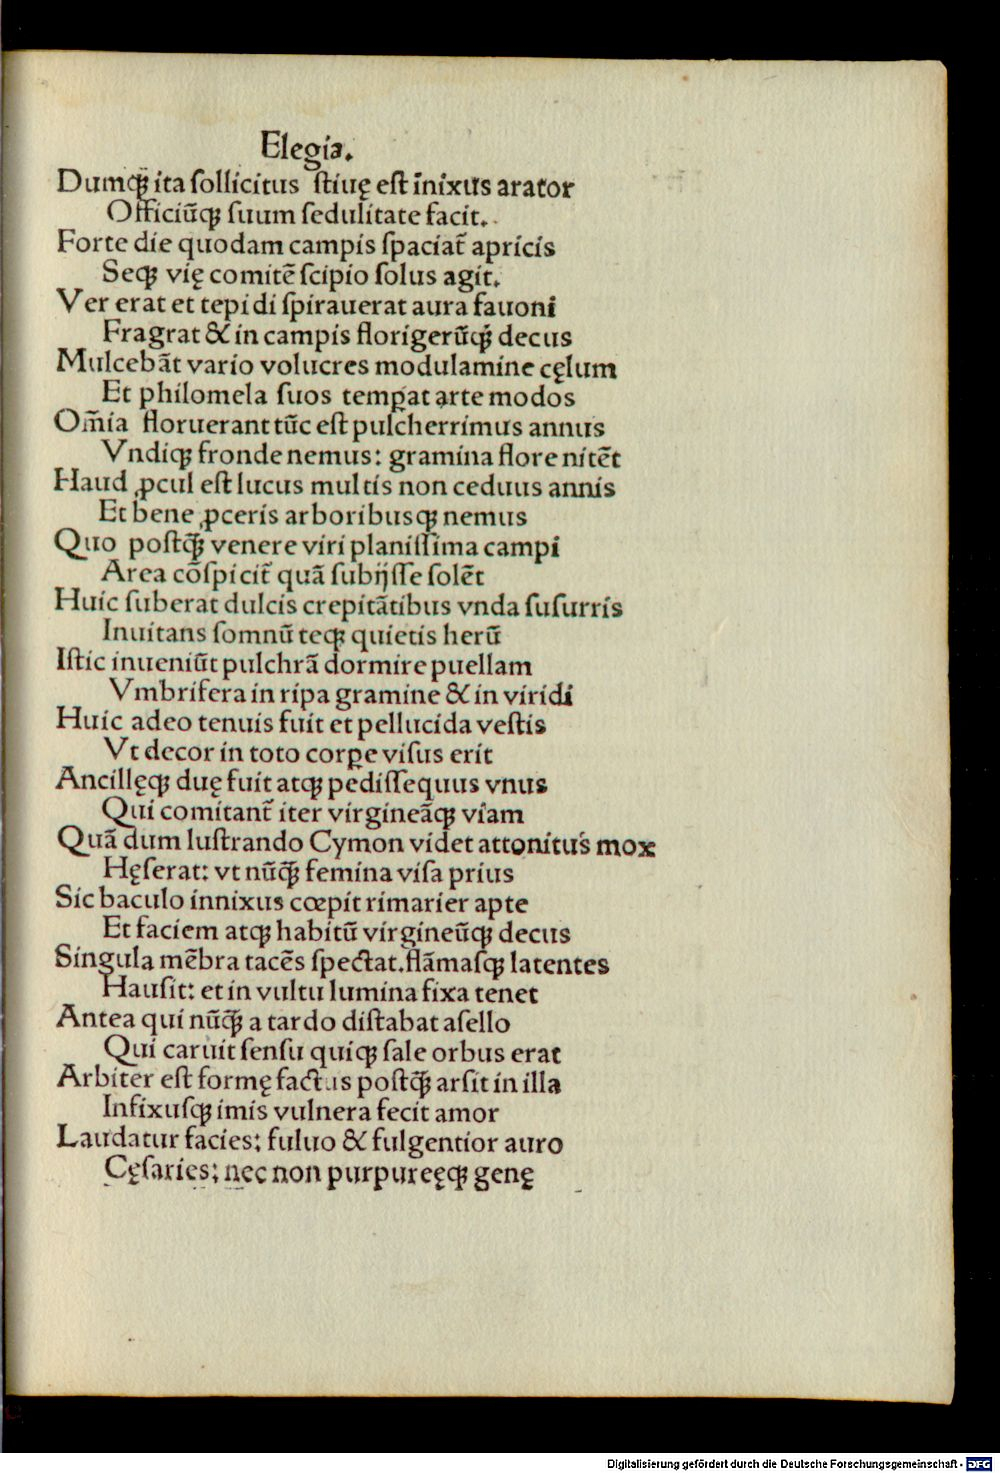 Elegia.
Dumqꝫ ita ſollicitus ſtiuę eſt īnixus arator
Officiūqꝫ ſuum ſedulitate facit.
Forte die quodam campis ſpaciat᷑ apricis
Seqꝫ vię comitē ſcipio ſolus agit.
Ver erat et tepidi ſpirauerat aura fauoni
Fragrat & in campis florigerūqꝫ decus
Mulcebāt vario volucres modulamine cęlum
Et philomela ſuos temꝑat arte modos
Om̄ia floruerant tūc eſt pulcherrimus annus
Vndiqꝫ fronde nemus: gramina flore nitēt
Haud ꝓcul eſt lucus multis non ceduus annis
Et bene ꝓceris arboribusqꝫ nemus
Quo poſtqꝫ̄ venere viri planiſſima campi
Area cōſpicit᷑ quā ſubijſſe ſolēt
Huic ſuberat dulcis crepitātibus vnda ſuſurris
Inuitans ſomnū teqꝫ quietis herū
Iſtic inueniūt pulchrā dormire puellam
Vmbrifera in ripa gramine & in viridi
Huic adeo tenuis fuit et pellucida veſtis
Vt decor in toto corꝑe viſus erit
Ancillęqꝫ duę fuit atqꝫ pediſſequus vnus
Qui comitant᷑ iter virgineāqꝫ viam
Quā dum luſtrando Cymon videt attonitus mox
Hęſerat: vt nūqꝫ̄ femina viſa prius
Sic baculo innixus cœpit rimarier apte
Et faciem atqꝫ habitū virgineūqꝫ decus
Singula mēbra tacēs ſpectat. flāmaſqꝫ latentes
Hauſit: et in vultu lumina fixa tenet
Antea qui nūqꝫ̄ a tardo diſtabat aſello
Qui caruit ſenſu quiqꝫ ſale orbus erat
Arbiter eſt formę factus poſtqꝫ̄ arſit in illa
Infixuſqꝫ imis vulnera fecit amor
Laudatur facies: fuluo & fulgentior auro
Cęſaries: nec non purpureęqꝫ genę
Digitalisierung gefördert durch die Deutsche Forschungsgemeinschaft - DFG